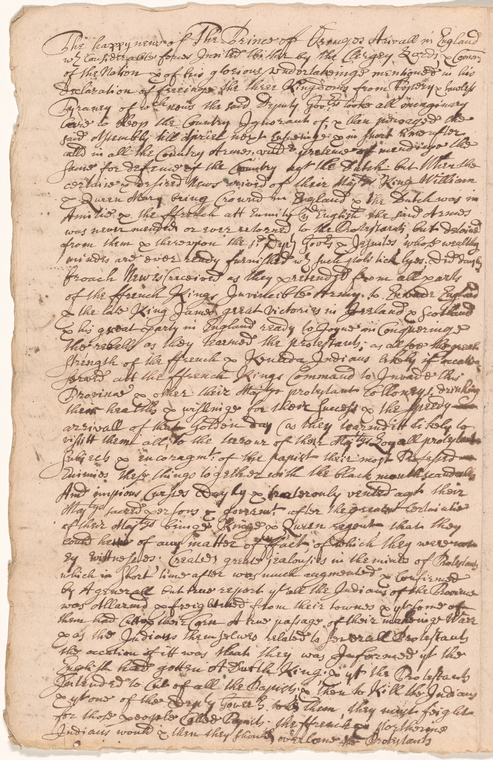 The happy news of The Prince of Oranges Arivall in England
wth Considerable forces Invited thither by the Clergey Lords & Comons
of the Nation & of his glorious undertakeings mentioned in his
declaration of freeing the three Kingdoms from Popery &
Tyraney of wch news the said Deputy Govrs tooke all imaginary
Care to keep the Country Ignorant of & then proroged the
said Assembly till Aprill next & in short time after
calld in all the Country Armes, undr pretence of mending the
same for defence of the Country agt the Dutch but When the
certaine & desired News arived of their Majtys King William
& Queen Mary being Crowned in England & the Dutch was in
Amitie & the ffrench att Enmity wth English the said Armes
was never mended or ever returned to the Protestants but detained
from them & thereupon the sd Depty Govrs & Jesuits whose wealthy
mindes are ever ready furnished wth such lies did dayly
broach Newes (received as they pretended) from all parts
of the ffrench Kings Invincible Army to Invade England
& the late King James great Victories in Ireland & Scotland
& his great party in England ready to Joyne in Conquering
the rebells as they tearmed the protestants; as allsoe the great
strength of the ffrench & Kenada Indians likely
att the ffrench Kings Command to Invade this
Province & other their Majtys protestants Collonys drinking
their healths & wishinge for their Success & the speedy
arrivall of that Golden day (as they tearnd itt) likely to
visitt them all, to the terrour of their Majtys Loyall protestant
subjects & incoragmt of the papist their most Professed
Enimies these things together with the black mouth scandals
And impious Curses Dayly & traiterously vented agt their
Majtys sacred persons & Governmt after the greatest certaintie
of their Majtys being King & Queen regent that they
could have of any matter of fact of which they were not
ey wittnesses: Created great Jealousies in the mindes of Protestants
which in short time after was much augmented & confirmed
by A generall but true report yt all the Indians of the Province
was Allarmd & freightned from their townes & yt some of
them had Cutt up their Corn A true pasage of their makeinge Warr
& as the Indians themselves related to severall Protestants
the occation of itt was that they was Informed yt the
English had gotten A Dutch King & yt the Protestants
Intended to Cut of all the Papists & then to Kill the Indians
& yt one of the Depty Govers told them they must feight
for those people Called Papists; the ffrench & Northerne
Indians would & then they should overcome the Protestants